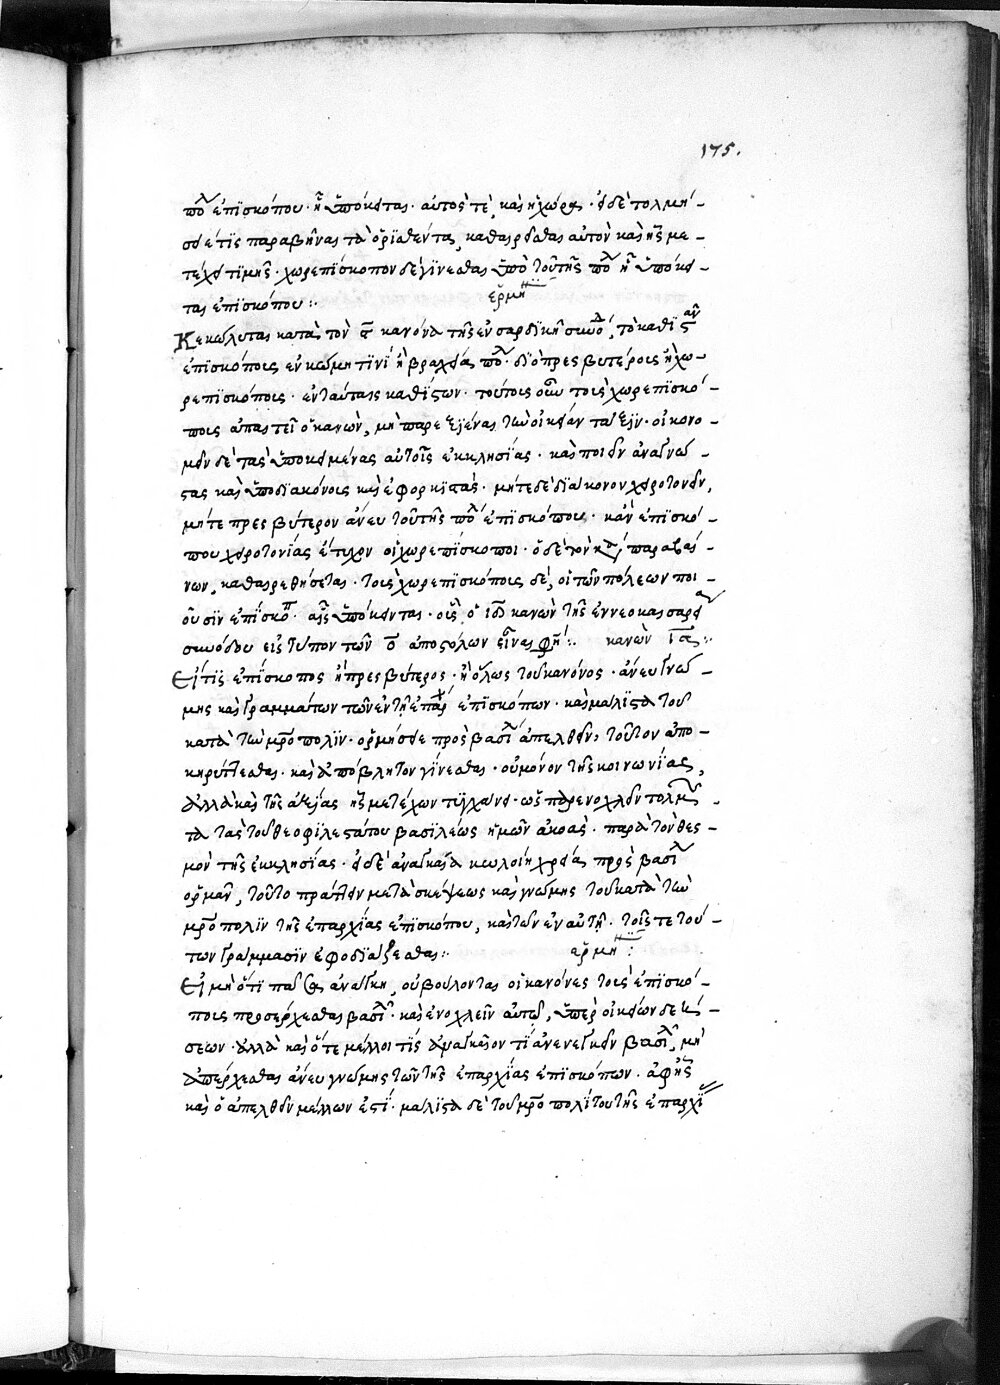 175.
πόλ ἐπισκόπου · ἧ ὑπόκειται · αὐτός τὲ καὶ ἡ χώρα · εἰ δὲ τολμή-
σειέ τις παραβῆναι τὰ ὁρισθέντα, καθαιρεῖσθαι αὐτὸν καὶ ἧς με-
τέχει τιμῆς · χωρεπίσκοπον δὲ γίνεσθαι ὑπὸ τοῦ τῆς πόλ ἧ ὑπόκει-
ται ἐπισκόπου :·
ἑρμη
Κεκώλυται κατὰ τὸν κανόνα τῆς ἐν σαρδικῆ συνόδ, τὸ καθίσταν
ἐπισκόποις ἐν κώμη τινὶ ἢ βραχεία πόλ · διὸ πρεσβυτέροις ἢ χω-
ρεπισκόποις · ἐν ταύταις καθιστῶν · τούτοις οὖν τοῖς χωρεπισκό-
ποις ἀπαιτεῖ ὁ κανὼν, μὴ παρεξιέναι τὴν οἰκείαν τάξιν · οἰκονο-
μεῖν δὲ τὰς ὑποκειμένας αὐτοῖς ἐκκλησίας · καὶ ποιεῖν ἀναγνώ-
στας καὶ ὑποδιακόνους καὶ ἐφορκιστὰς · μήτε δὲ διάκονον χειροτονεῖν,
μήτε πρεσβύτερον ἄνευ τοῦ τῆς πόλ ἐπισκόπου · κἂν ἐπισκό-
που χειροτονίας ἔτυχον οἱ χωρεπίσκοποι · ὁ δὲ τὸν κα, παραβαί-
νων, καθαιρεθήσεται · τοῖς χωρεπισκόποις δὲ, οἱ τῶν πόλεων ποι-
οῦσιν ἐπίσκοπ · αἷς ὑπόκεινται · οὓς ὁ ιδ κανὼν τῆς ἐν νεοκαισαρεία
συνόδου εἰς τύπον τῶν ο ἀποστόλων εἶναι φη :· κανὼν ια :·
Εἴ τις ἐπίσκοπος ἢ πρεσβύτερος · ἢ ὅλως τοῦ κανόνος · ἄνευ γνώ-
μης καὶ γραμμάτων τῶν ἐν τῆ ἐπαρχ ἐπισκόπων · καὶ μάλιστα τοῦ
κατὰ τὴν μρόπολιν · ὁρμήσειε πρὸς βασιλ ἀπελθεῖν, τοῦτον ἀπο-
κηρύττεσθαι · καὶ ἀπόβλητον γίνεσθαι · οὐ μόνον τῆς κοινωνίας,
ἀλλὰ καὶ τῆς ἀξίας ἧς μετέχων τυγχάνει · ὡς παρενοχλεῖν τολμῶν
τὰ τὰς τοῦ θεοφιλεστάτου βασιλέως ἡμῶν ἀκοὰς · παρὰ τὸν θεσ-
μὸν τῆς ἐκκλησίας · εἰ δὲ ἀναγκαία καλοίη χρεία πρὸς βασιλ
ὁρμᾶν, τοῦτο πράττειν μετὰ σκέψεως καὶ γνώμης τοῦ κατὰ τὴν
μρόπολιν τῆς ἐπαρχίας ἐπισκόπου, καὶ τῶν ἐν αὐτῆ · τοῖς τε τού-
των γράμμασιν ἐφοδιάζεσθαι :·
ἑρμη :
Εἰ μὴ ὅτι πᾶσα ἀνάγκη, οὐ βούλονται οἱ κανόνες τοὺς ἐπισκό-
ποις προσέρχεσθαι βασιλ · καὶ ἐνοχλεῖν αὐτῶ, ὑπὲρ οἰκείων δεή-
σεων · ἀλλὰ καὶ ὅτε μέλλοι τίς ἀναγκαῖον τί ἀνενεγκεῖν βασιλ, μὴ
ἀπέρχεσθαι ἄνευ γνώμης τῶν τῆς ἐπαρχίας ἐπισκόπων · ἀφ' ἧς
καὶ ὁ ἀπελθεῖν μέλλων ἐστί · μάλιστα δὲ τοῦ μροπολίτου τῆς ἐπαρχί